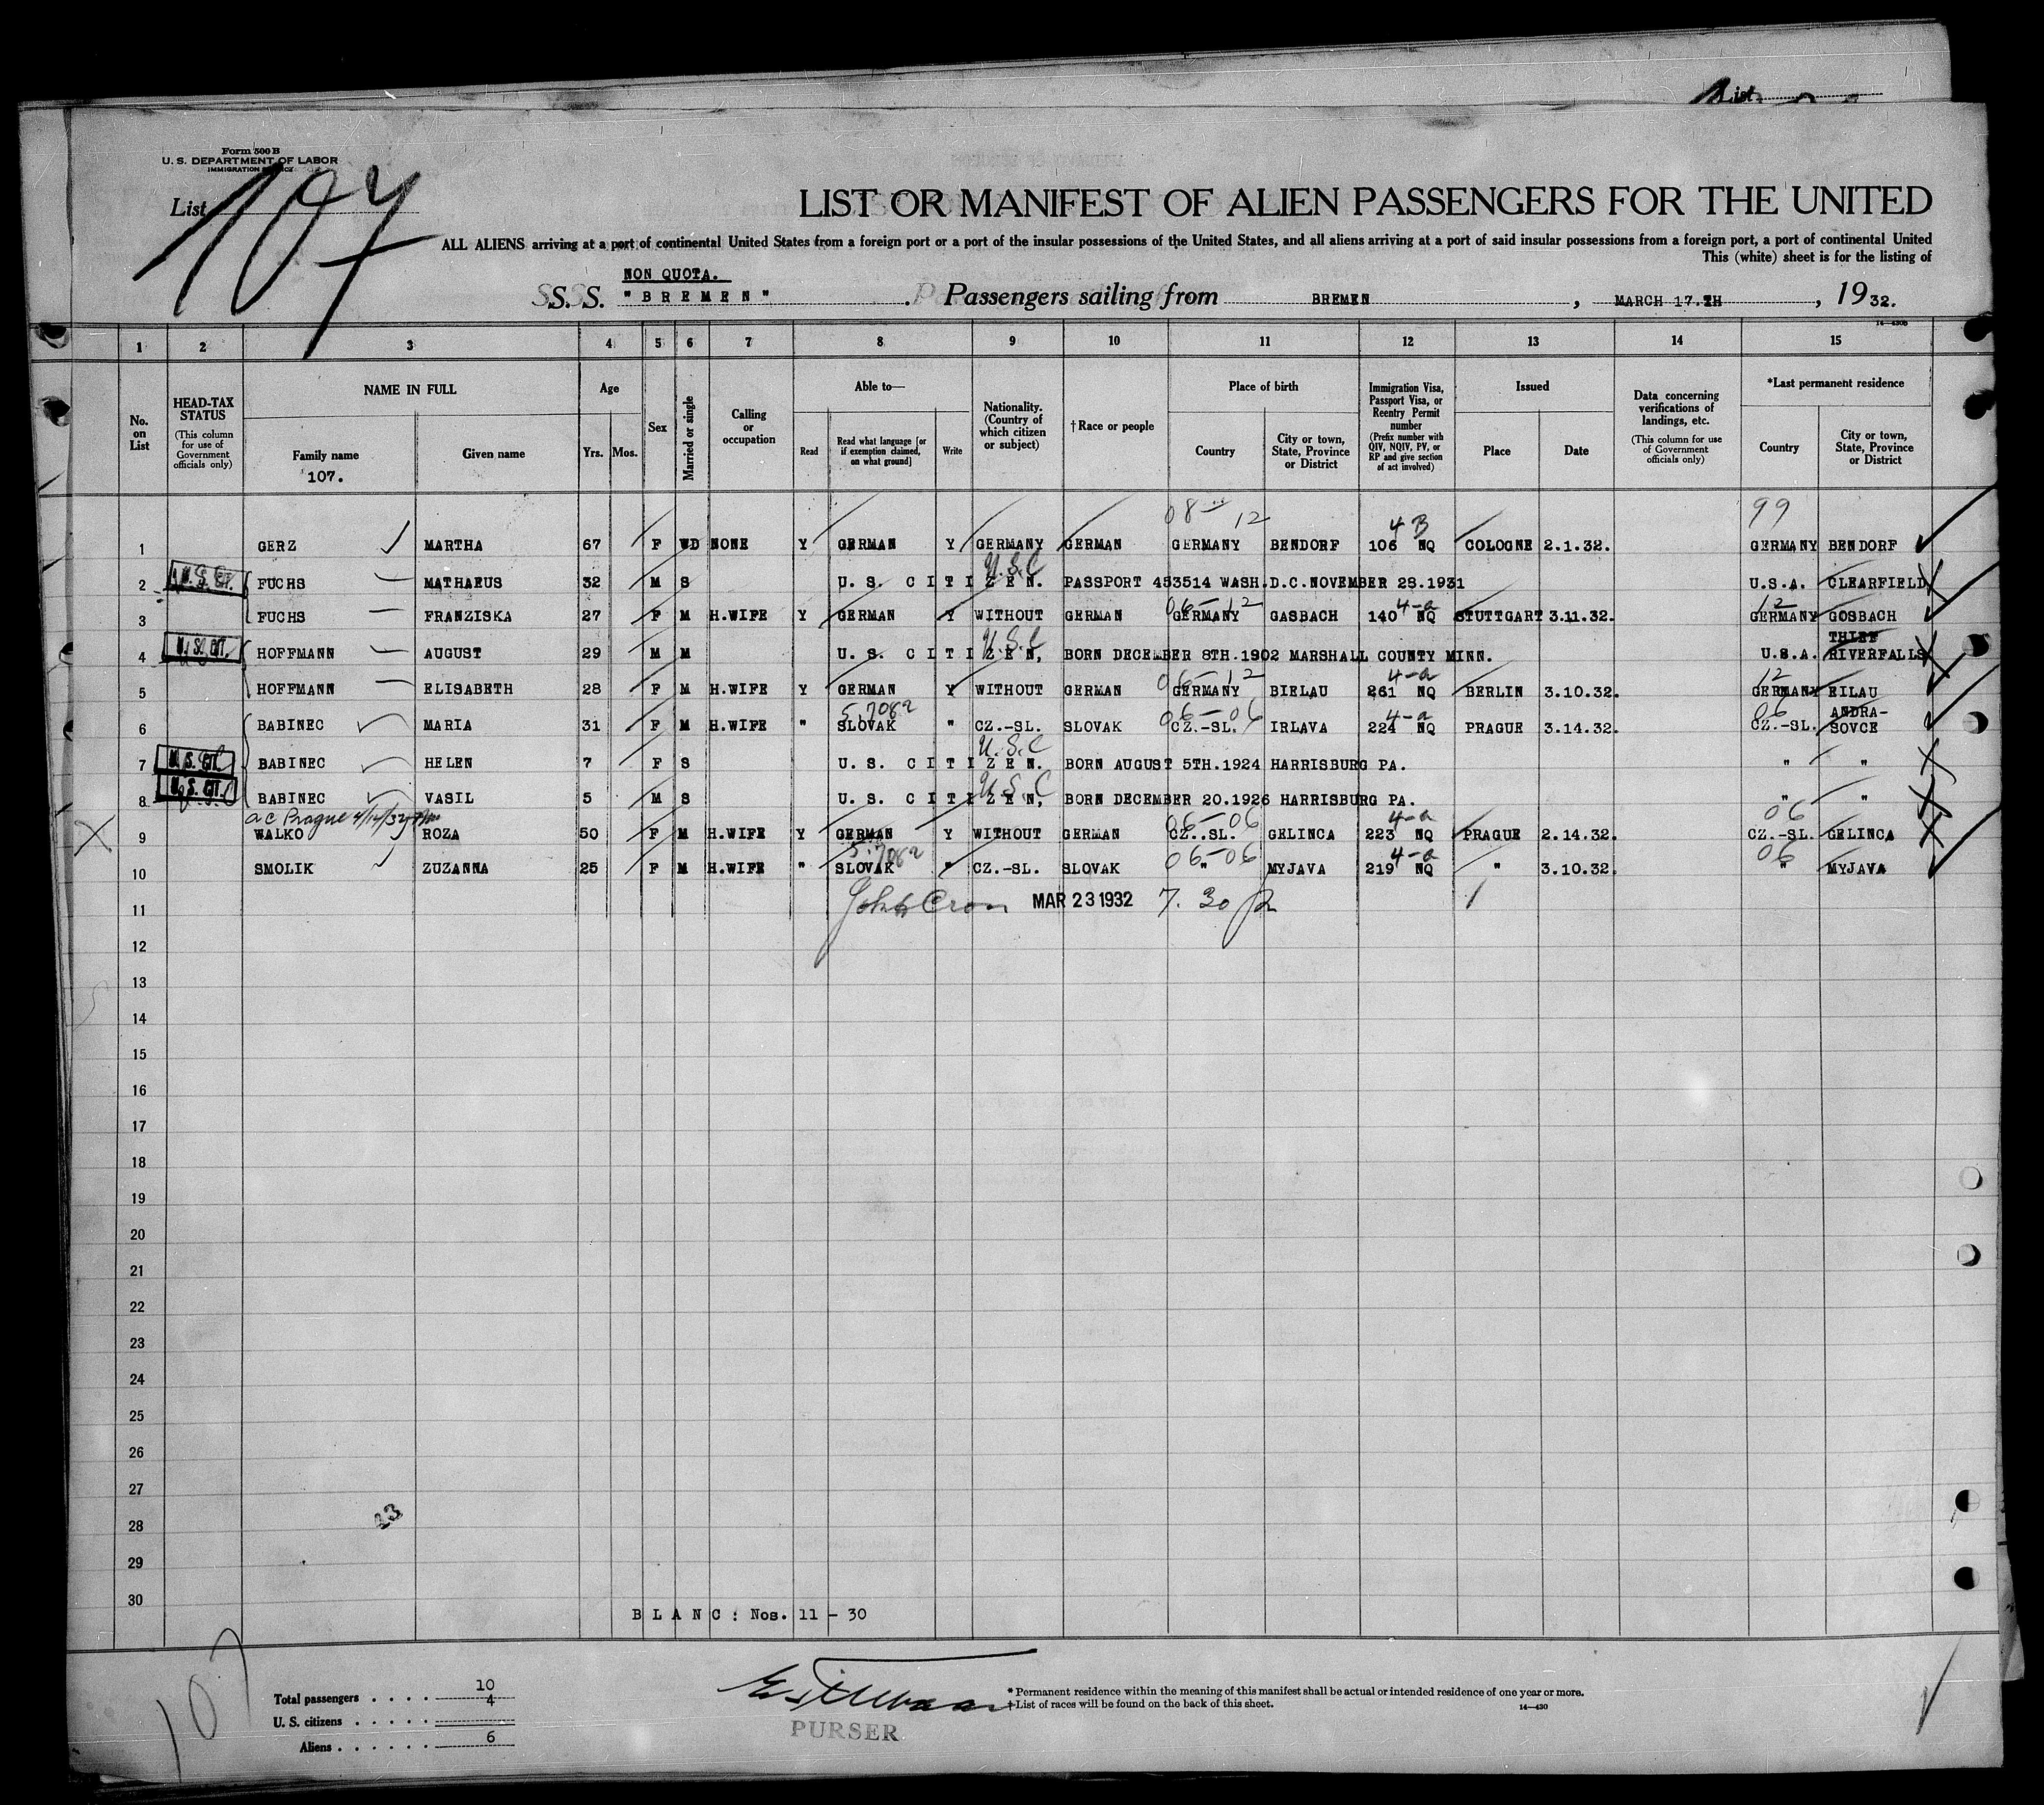 List
Form 500 B
U. S. DEPARTMENT OF LABOR
IMMIGRATION SERVICE
List 107
LIST OR MANIFEST OF ALIEN PASSENGERS FOR THE UNITED
ALL ALIENS arriving at a port of continental United States from a foreign port or a port of the insular possessions of the United States, and all aliens arriving at a port of said insular possessions from a foreign port, a port of continental United
This (white) sheet is for the listing of
NON QUOTA.
S. S. "BREMEN" Passengers sailing from BREMEN, MARCH 17.TH, 1932.
14—430B
1 2 3 4 5 6 7 8 9 10 11 12 13 14 15
No. on List
HEAD-TAX STATUS (This column for use of Government officials only)
NAME IN FULL
Family name
107.
Given name
Age
Yrs. Mos.
Sex
Married or single
Calling or occupation
Able to—
Read
Read what language [or if exemption claimed, on what ground]
Write
Nationality. (Country of which citizen or subject)
†Race or people
Place of birth
Country
City or town, State, Province or District
Immigration Visa, Passport Visa, or Reentry Permit number (Prefix number with QIV, NQIV, PV, or RP and give section of act involved)
Issued
Place
Date
Data concerning verifications of landings, etc. (This column for use of Government officials only)
*Last permanent residence
Country
City or town, State, Province or District
08 12 4 B 99
1 GERZ MARTHA 67 F WD NONE Y GERMAN Y GERMANY GERMAN GERMANY BENDORF 106 NQ COLOGNE 2.1.32. GERMANY BENDORF
U.S.C
2 U.S. CIT. FUCHS MATHAEUS 32 M S U.S. CITIZEN. PASSPORT 453514 WASH.D.C.NOVEMBER 28.1931 U.S.A. CLEARFIELD
06-12 4-a 12
3 FUCHS FRANZISKA 27 F M H.WIFE Y GERMAN Y WITHOUT GERMAN GERMANY GASBACH 140 NQ STUTTGART 3.11.32. GERMANY GOSBACH
U.S.C THIEF
4 U.S. CIT. HOFFMANN AUGUST 29 M M U.S. CITIZEN, BORN DECEMBER 8TH.1902 MARSHALL COUNTY MINN. U.S.A. RIVERFALLS
06-12 4-a 12
5 HOFFMANN ELISABETH 28 F M H.WIFE Y GERMAN Y WITHOUT GERMAN GERMANY BIELAU 261 NQ BERLIN 3.10.32. GERMANY EILAU
06-06 4-a 06 ANDRA-
6 BABINEC MARIA 31 F M H.WIFE " SLOVAK " CZ.-SL. SLOVAK CZ.-SL. IRLAVA 224 NQ PRAGUE 3.14.32. CZ.-SL. SOVCE
U.S.C
7 U.S. CIT. BABINEC HELEN 7 F S U.S. CITIZEN. BORN AUGUST 5TH.1924 HARRISBURG PA. " "
U.S.C
8 U.S. CIT. BABINEC VASIL 5 M S U.S. CITIZEN, BORN DECEMBER 20.1926 HARRISBURG PA. " "
06-06 4-a 06
9 WALKO ROZA 50 F M H.WIFE Y GERMAN Y WITHOUT GERMAN CZ..SL. GELINCA 223 NQ PRAGUE 2.14.32. CZ.-SL. GELINCA
06-06 4-a 06
10 SMOLIK ZUZANNA 25 F M H.WIFE " SLOVAK " CZ.-SL. SLOVAK " MYJAVA 219 NQ " 3.10.32. " MYJAVA
11 MAR 23 1932 7.30
12
13
14
15
16
17
18
19
20
21
22
23
24
25
26
27
28
29
30
BLANC: Nos. 11 - 30
107
Total passengers 10
4
U. S. citizens
Aliens 6
PURSER
* Permanent residence within the meaning of this manifest shall be actual or intended residence of one year or more.
† List of races will be found on the back of this sheet.
14—430